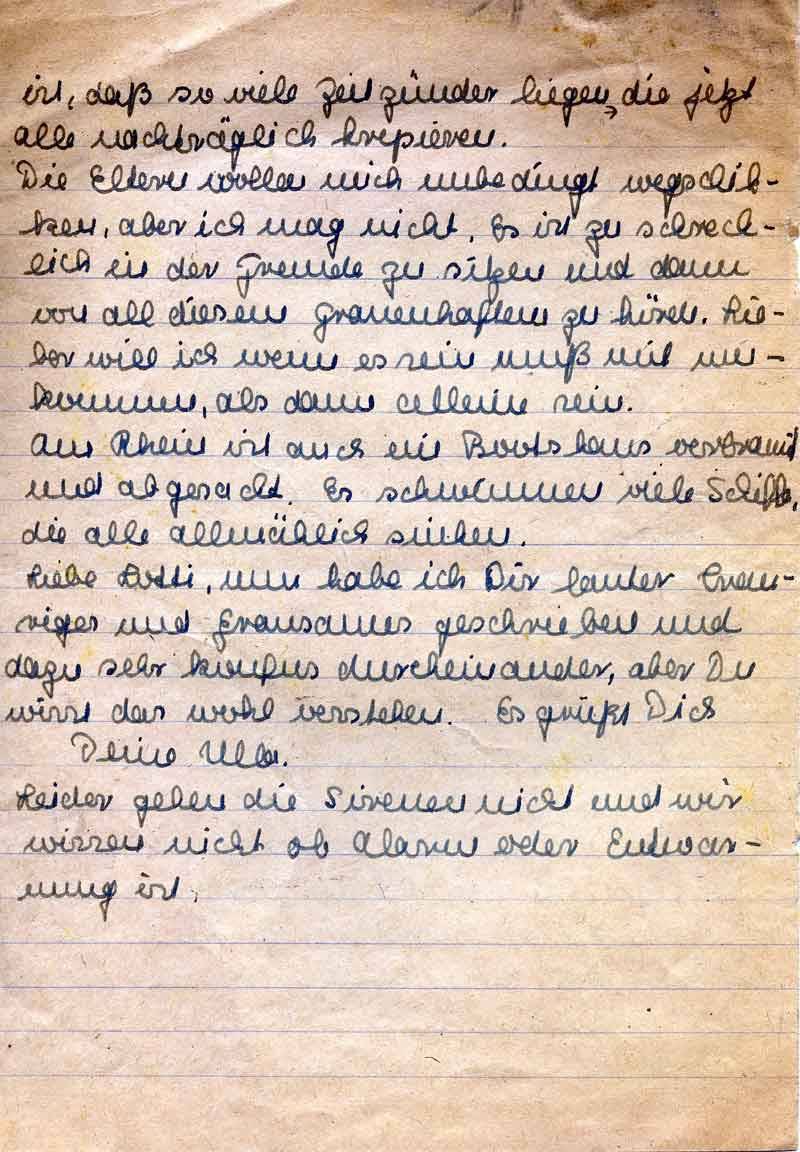 ist, daß so viele Zeitzünder liegen, die jetzt
alle nachträglich krepieren.
Die Eltern wollen mich unbedingt wegschik-
ken, aber ich mag nicht. Es ist zu schreck-
lich in der Fremde zu sitzen und dann
von all diesem Grauenhaften zu hören. Lie-
ber will ich wenn es sein muß mit um-
kommen, als dann alleine sein.
Am Rhein ist auch ein Bootshaus verbrannt
und abgesackt. Es schwimmen viele Schiffe,
die alle allmählich sinken.
Liebe Lotti, nun habe ich Dir lauter Trau-
riges und Grausames geschrieben und
dazu sehr konfus durcheinander, aber Du
wirst das wohl verstehen. Es grüßt Dich
Deine Ulla.
Leider gehen die Sirenen nicht und wir
wissen nicht ob Alarm oder Entwar-
nung ist.